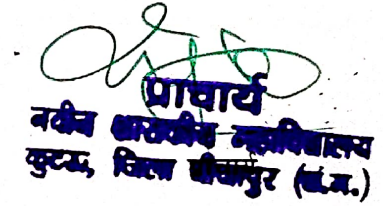 प्राचार्य
नवीन शासकीय महाविद्यालय
कुटरू, जिला बीजापुर (छ.ग.)